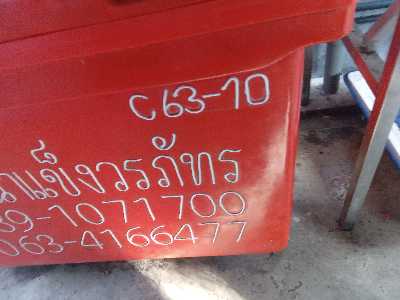 C63-10
น้ำแข็งวรภัทร
89-1071700
063-4166477